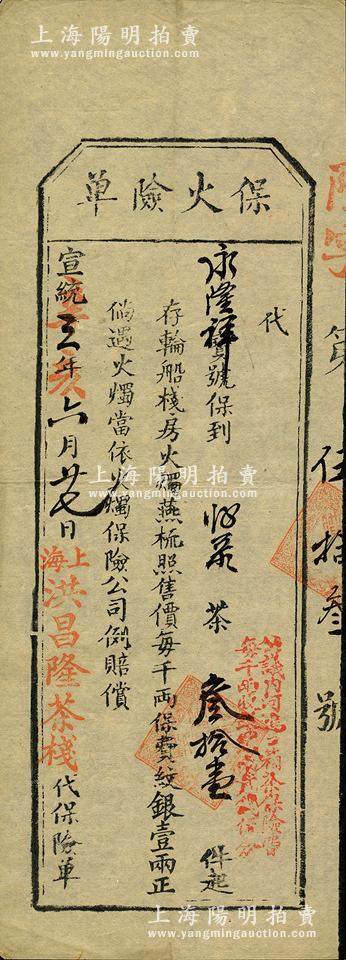 上海陽明拍賣
www.yangmingauction.com
保火險單
第 伍拾叁 號
代
永隆祥寶號保到 茶 叁拾壹 件起
存輪船棧房火燭燕梳照售價每千兩保費紋銀壹兩正
倘遇火燭當依火燭保險公司例賠償
宣統三年六月廿七日
辛亥
上海洪昌隆茶棧代保險單
上海陽明拍賣
www.yangmingauction.com
上海陽明拍賣
www.yangmingauction.com